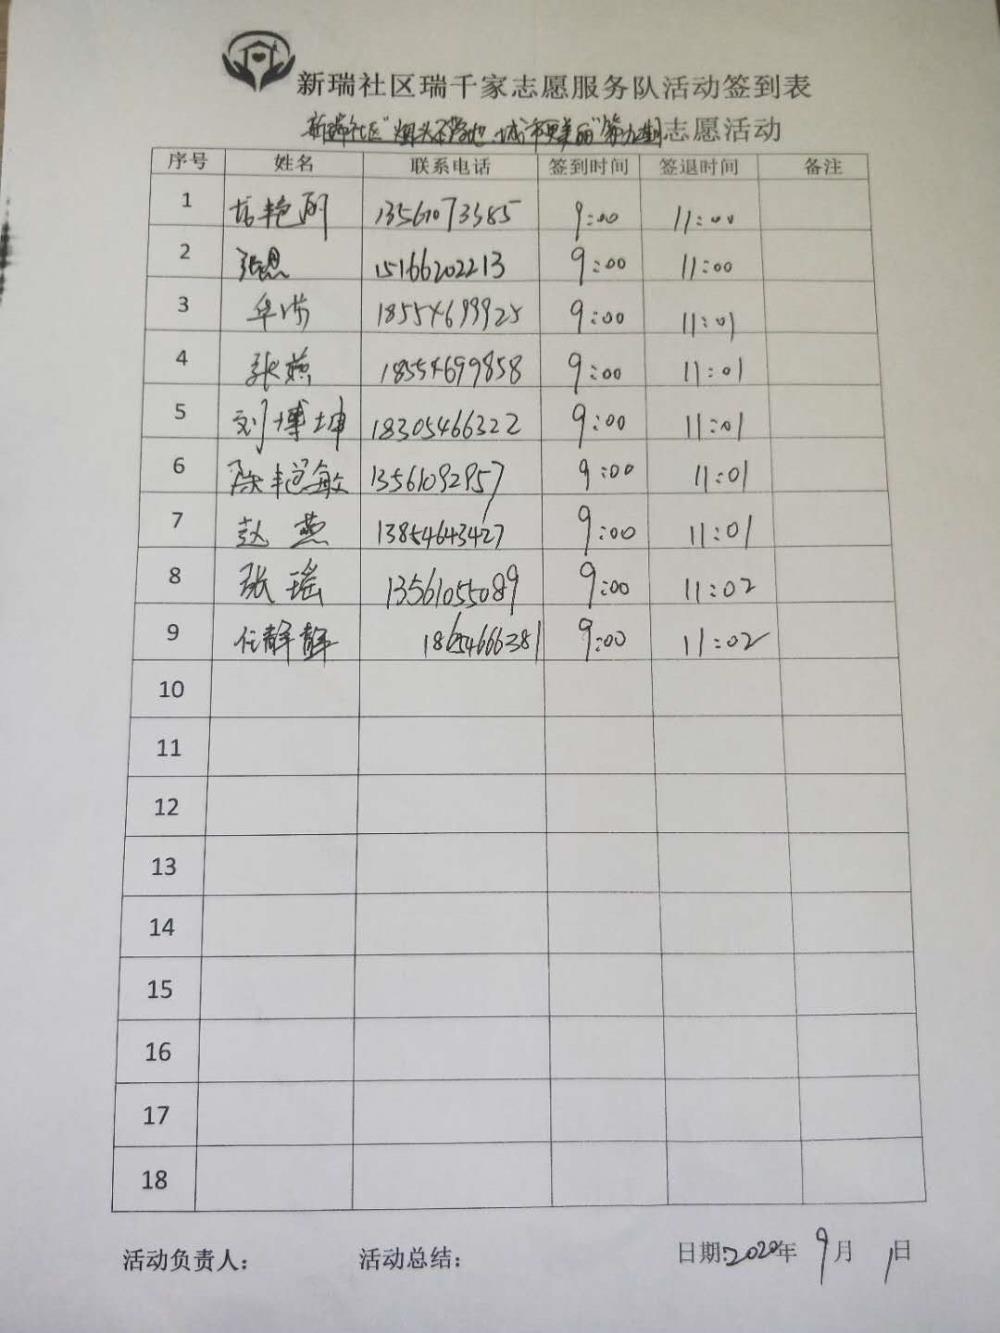 新瑞社区瑞千家志愿服务队活动签到表
新瑞社区"烟头不落地 城市更美丽"第九期志愿活动
序号 姓名 联系电话 签到时间 签退时间 备注
1 艳丽 13561073385 9:00 11:00
2 张恩 15166202213 9:00 11:00
3 18554699925 9:00 11:01
4 张燕 18554699858 9:00 11:01
5 刘博坤 18305466322 9:00 11:01
6 陈艳敏 13561092957 9:00 11:01
7 赵燕 13854643427 9:00 11:01
8 张瑶 13561055089 9:00 11:02
9 任静静 18654666381 9:00 11:02
10
11
12
13
14
15
16
17
18
活动负责人： 活动总结： 日期:2020年 9月 1日